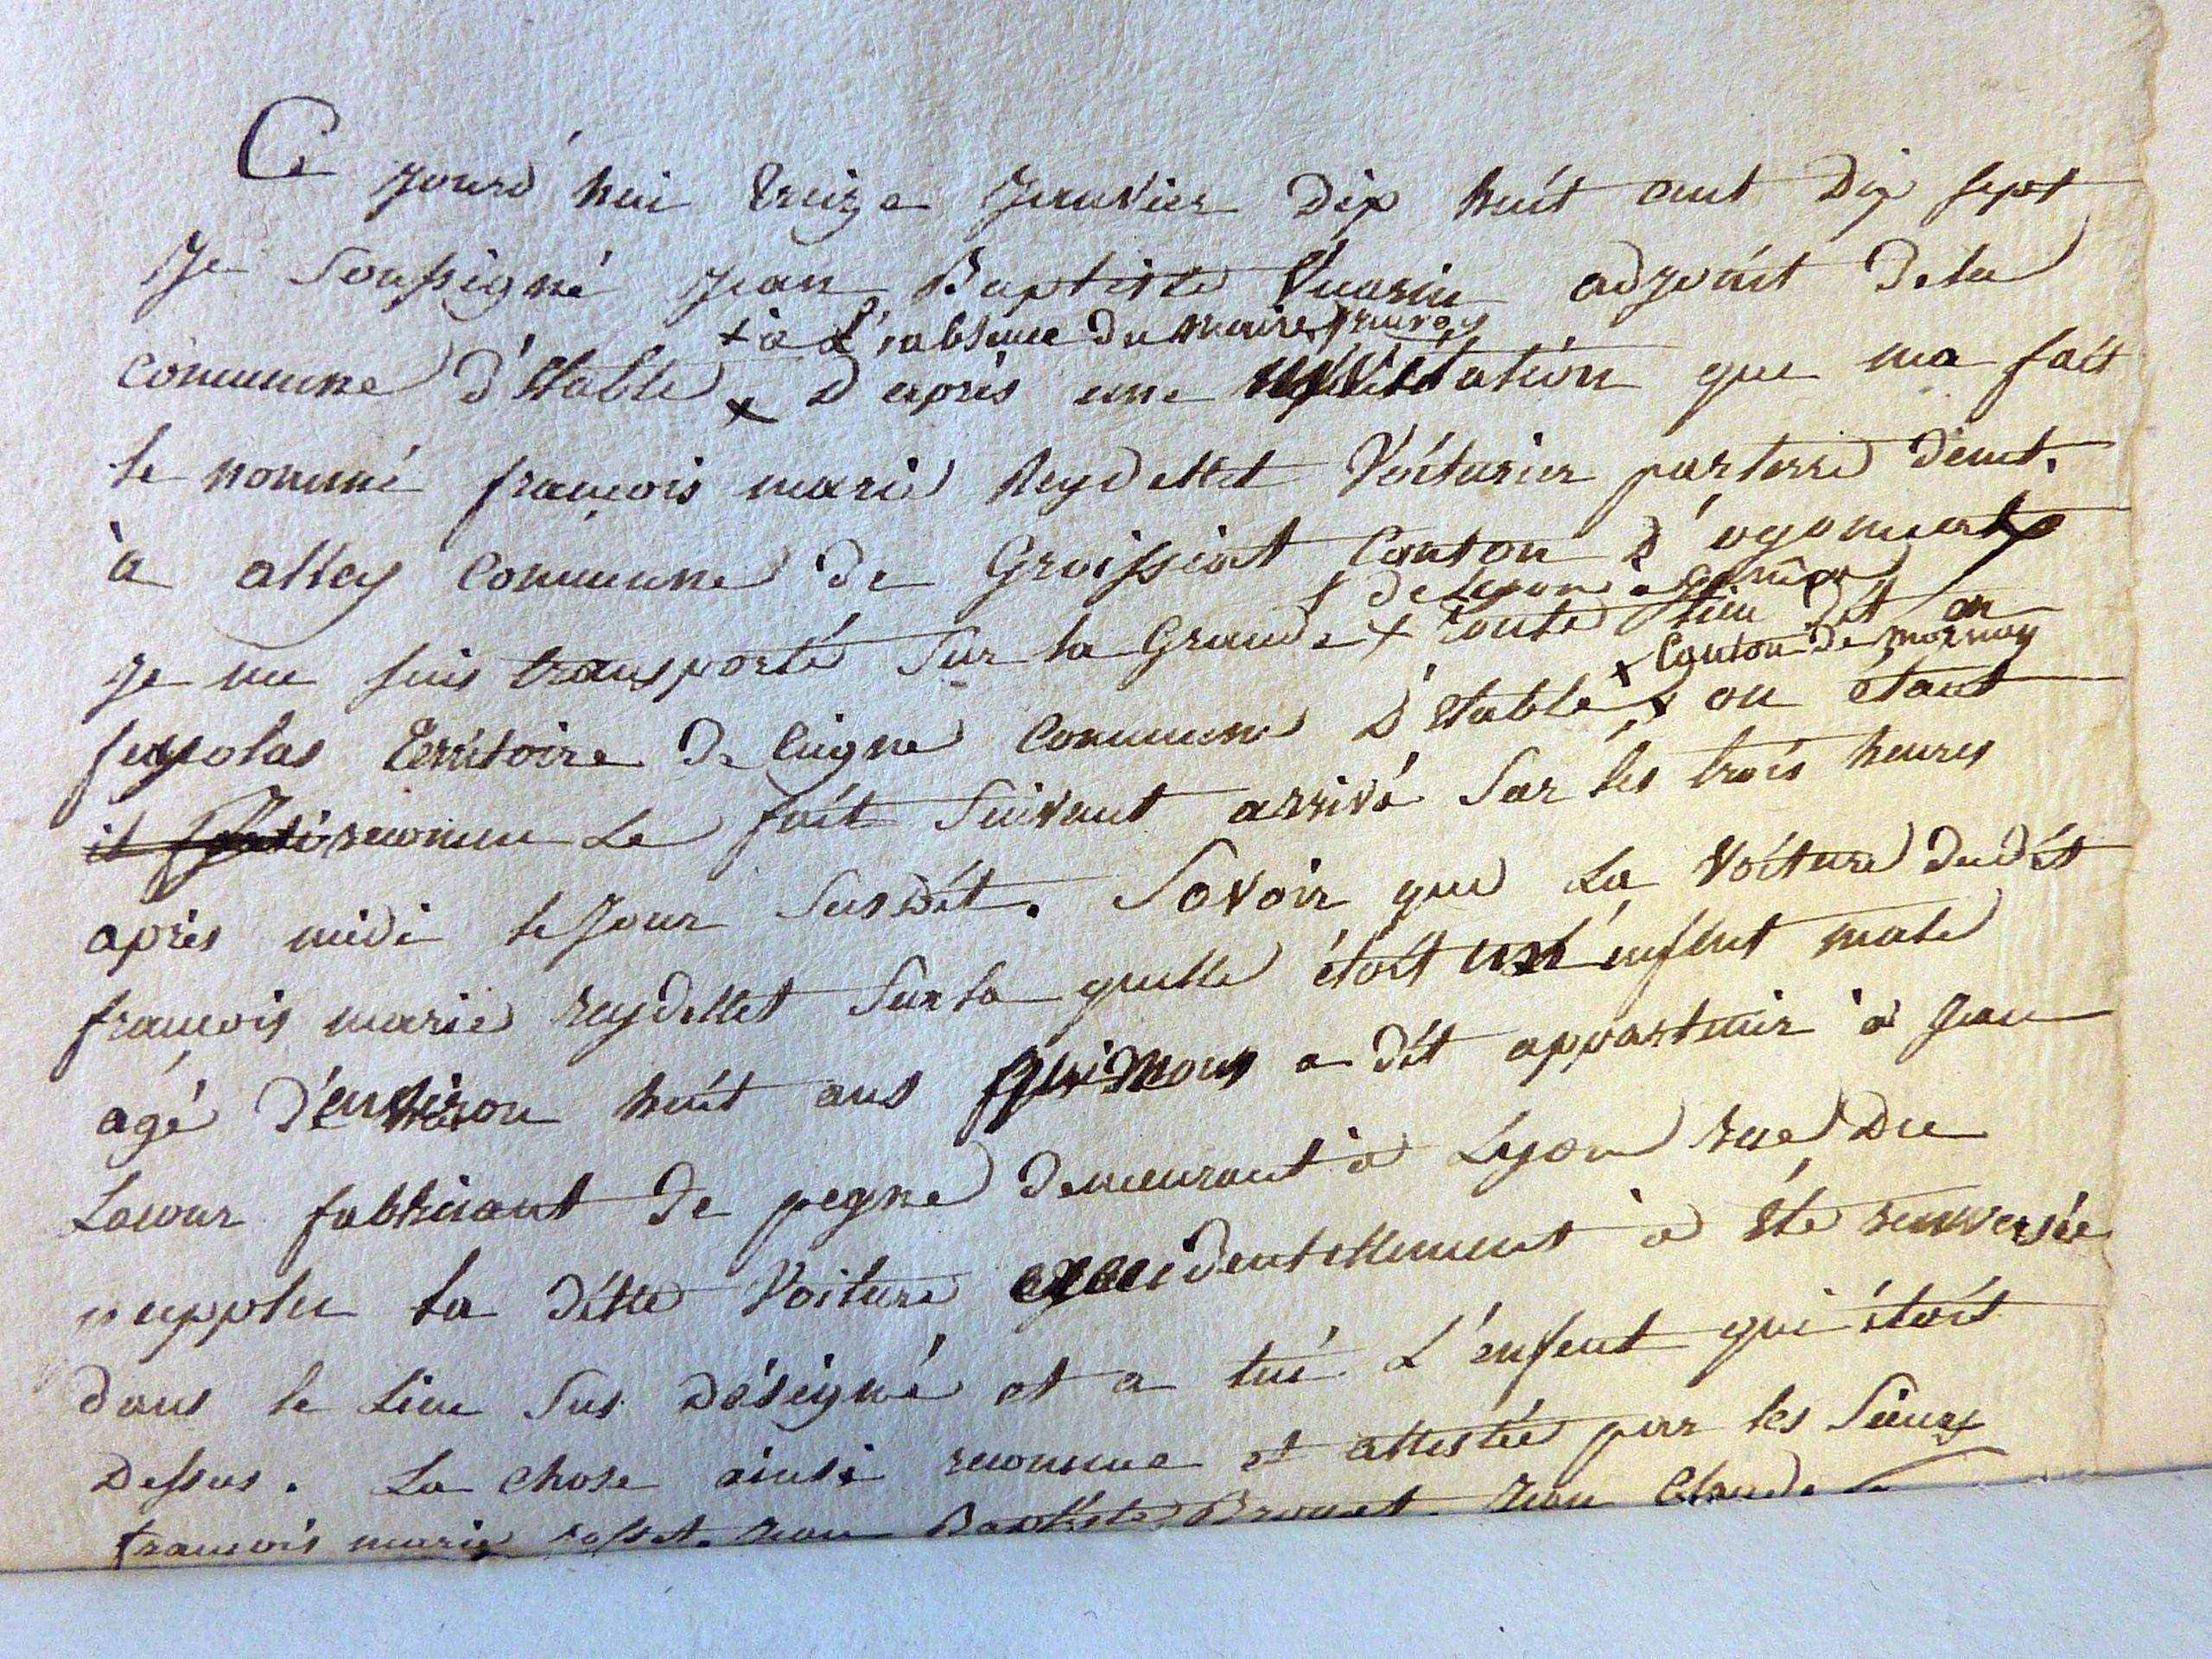 Ce jourd'hui treize Janvier Dix huit cent Dix sept
Je soussigné jean Baptiste Vuarin adjoint de la
+ à L'absence du maire
commune d'Etable x D'après une invitation que ma fait
le nommé françois marie Reydellet Voiturier par terre demt.
à alley Commune de Groissiat Canton D'oyonnax
+ de Lyon a Genève
je me suis transporté sur la Grande + route lieu dit en
x Canton de mornay
territoire de Ceigne commune D'Etable x ou étant
il reconnu Le fait suivant arrivé sur les trois heures
après midi le jour susdit. Savoir que La Voiture dudit
françois marie reydellet sur la quelle étoit un enfent male
agé d'environ huit ans qui nous a dit appartenir à jean
Lacour fabricant de pegne demeurant à Lyon rue Du
la ditte Voiture accidentellement à Eté renversée
dans le Lieu sus désigné et a tué L'enfent qui étoit
Dessus. La chose ainsi reconnue et attestée par les Sieurs
françois marie jean Baptiste jean Claude